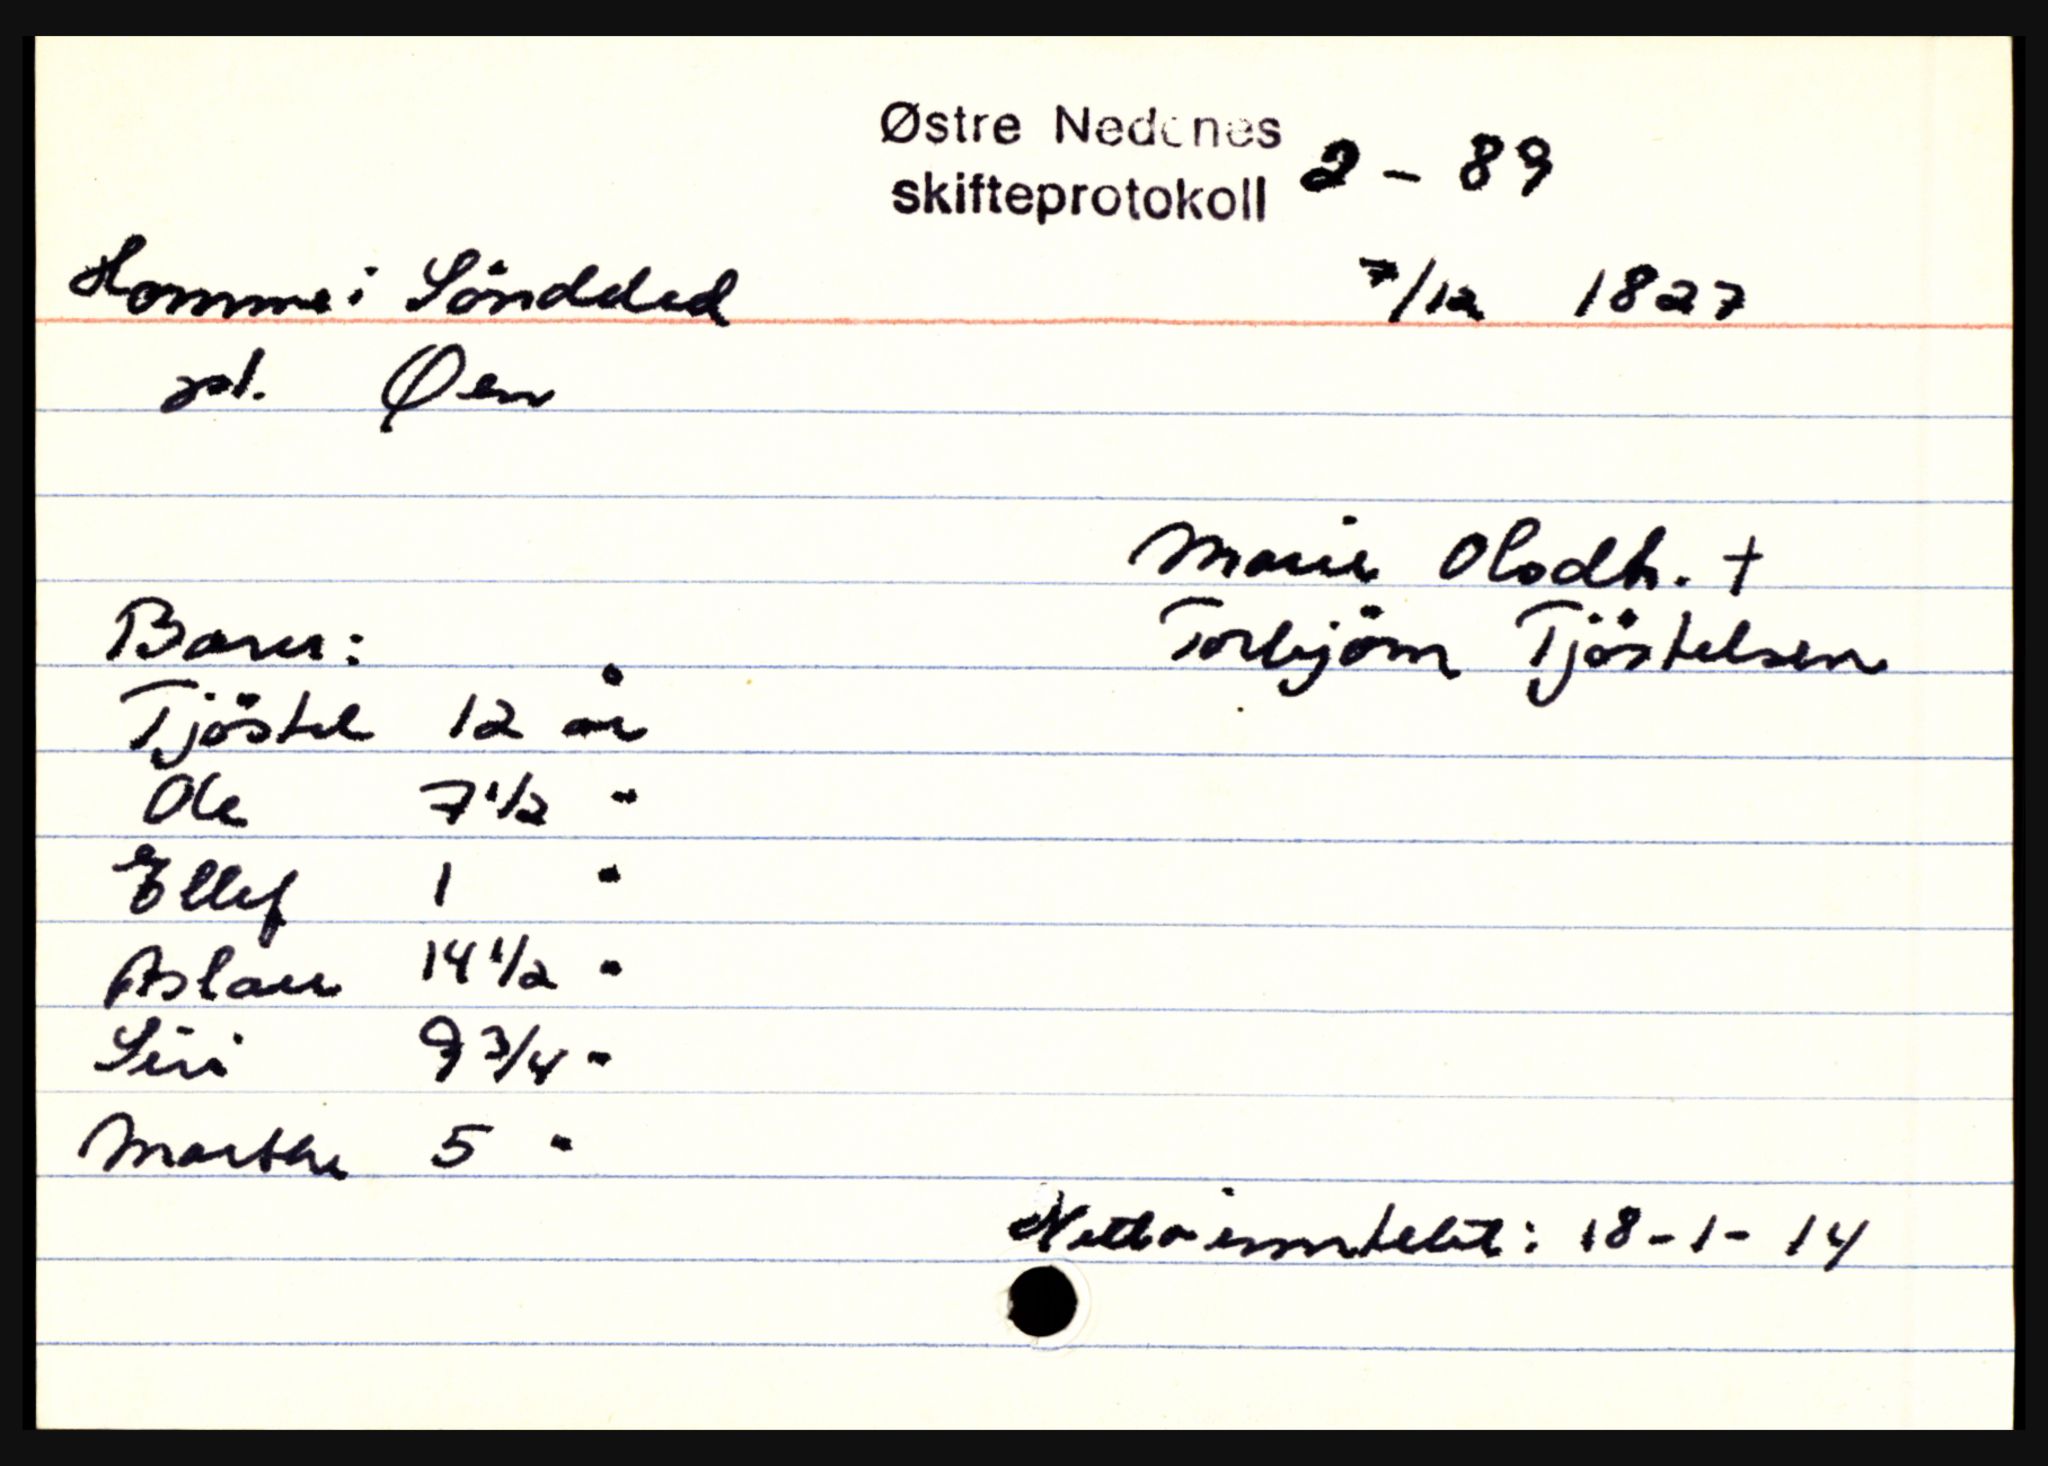 Østre Nedenes
skifteprotokoll 2 - 89
Homme i Söndeled 7/12 1827
pl. Øen
Marie Olsdtr. +
Barn: Torbjörn Tjöstelsen
Tjöstel 12 år
Ole 7 1/2 "
Ellef 1 "
Aslau 14 1/2 "
Siri 9 3/4 "
Marthe 5 "
Netto inntekt: 18-1-14